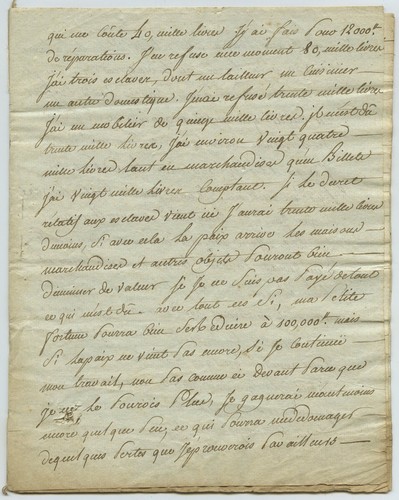 qui me Coute 40, mille livre J'y ai fais Pour 12000tt.
de réparations. J'en refuse en ce moment 80, mille livre
J'ai trois esclaves, dont un tailleur un Cuisinier
un autre domestique. J'en ai refuse trente mille livre
J'ai un mobilier de quinze mille livres. il m'est dû
trente mille Livres, J'ai environ vingt quatre
mille livres tant en marchandises qu'en Billets
J'ai vingt mille livres Comptant. Si le decret
relatif aux esclaves vient ici J'aurai trente mille livre
de moins, Si avec cela la paix arrive Les maisons
marchandises et autres objets Pourront bien
diminuer de valeur Je ne Suis pas Payé de tout
ce qui m'est dû. avec tout ces Si, ma Petite
fortune Pourra bien Se Reduire à 100,000tt. mais
Si la paix ne vient Pas encore, Si Je Continue
mon travail, non Pas Comme ci devant Parce que
je ne le Pourois Plus, Je gagnerai neant moins
encore quelque Peu, ce qui Pourra me dedomager
de quelques Pertes que J'éprouverois Par ailleurs